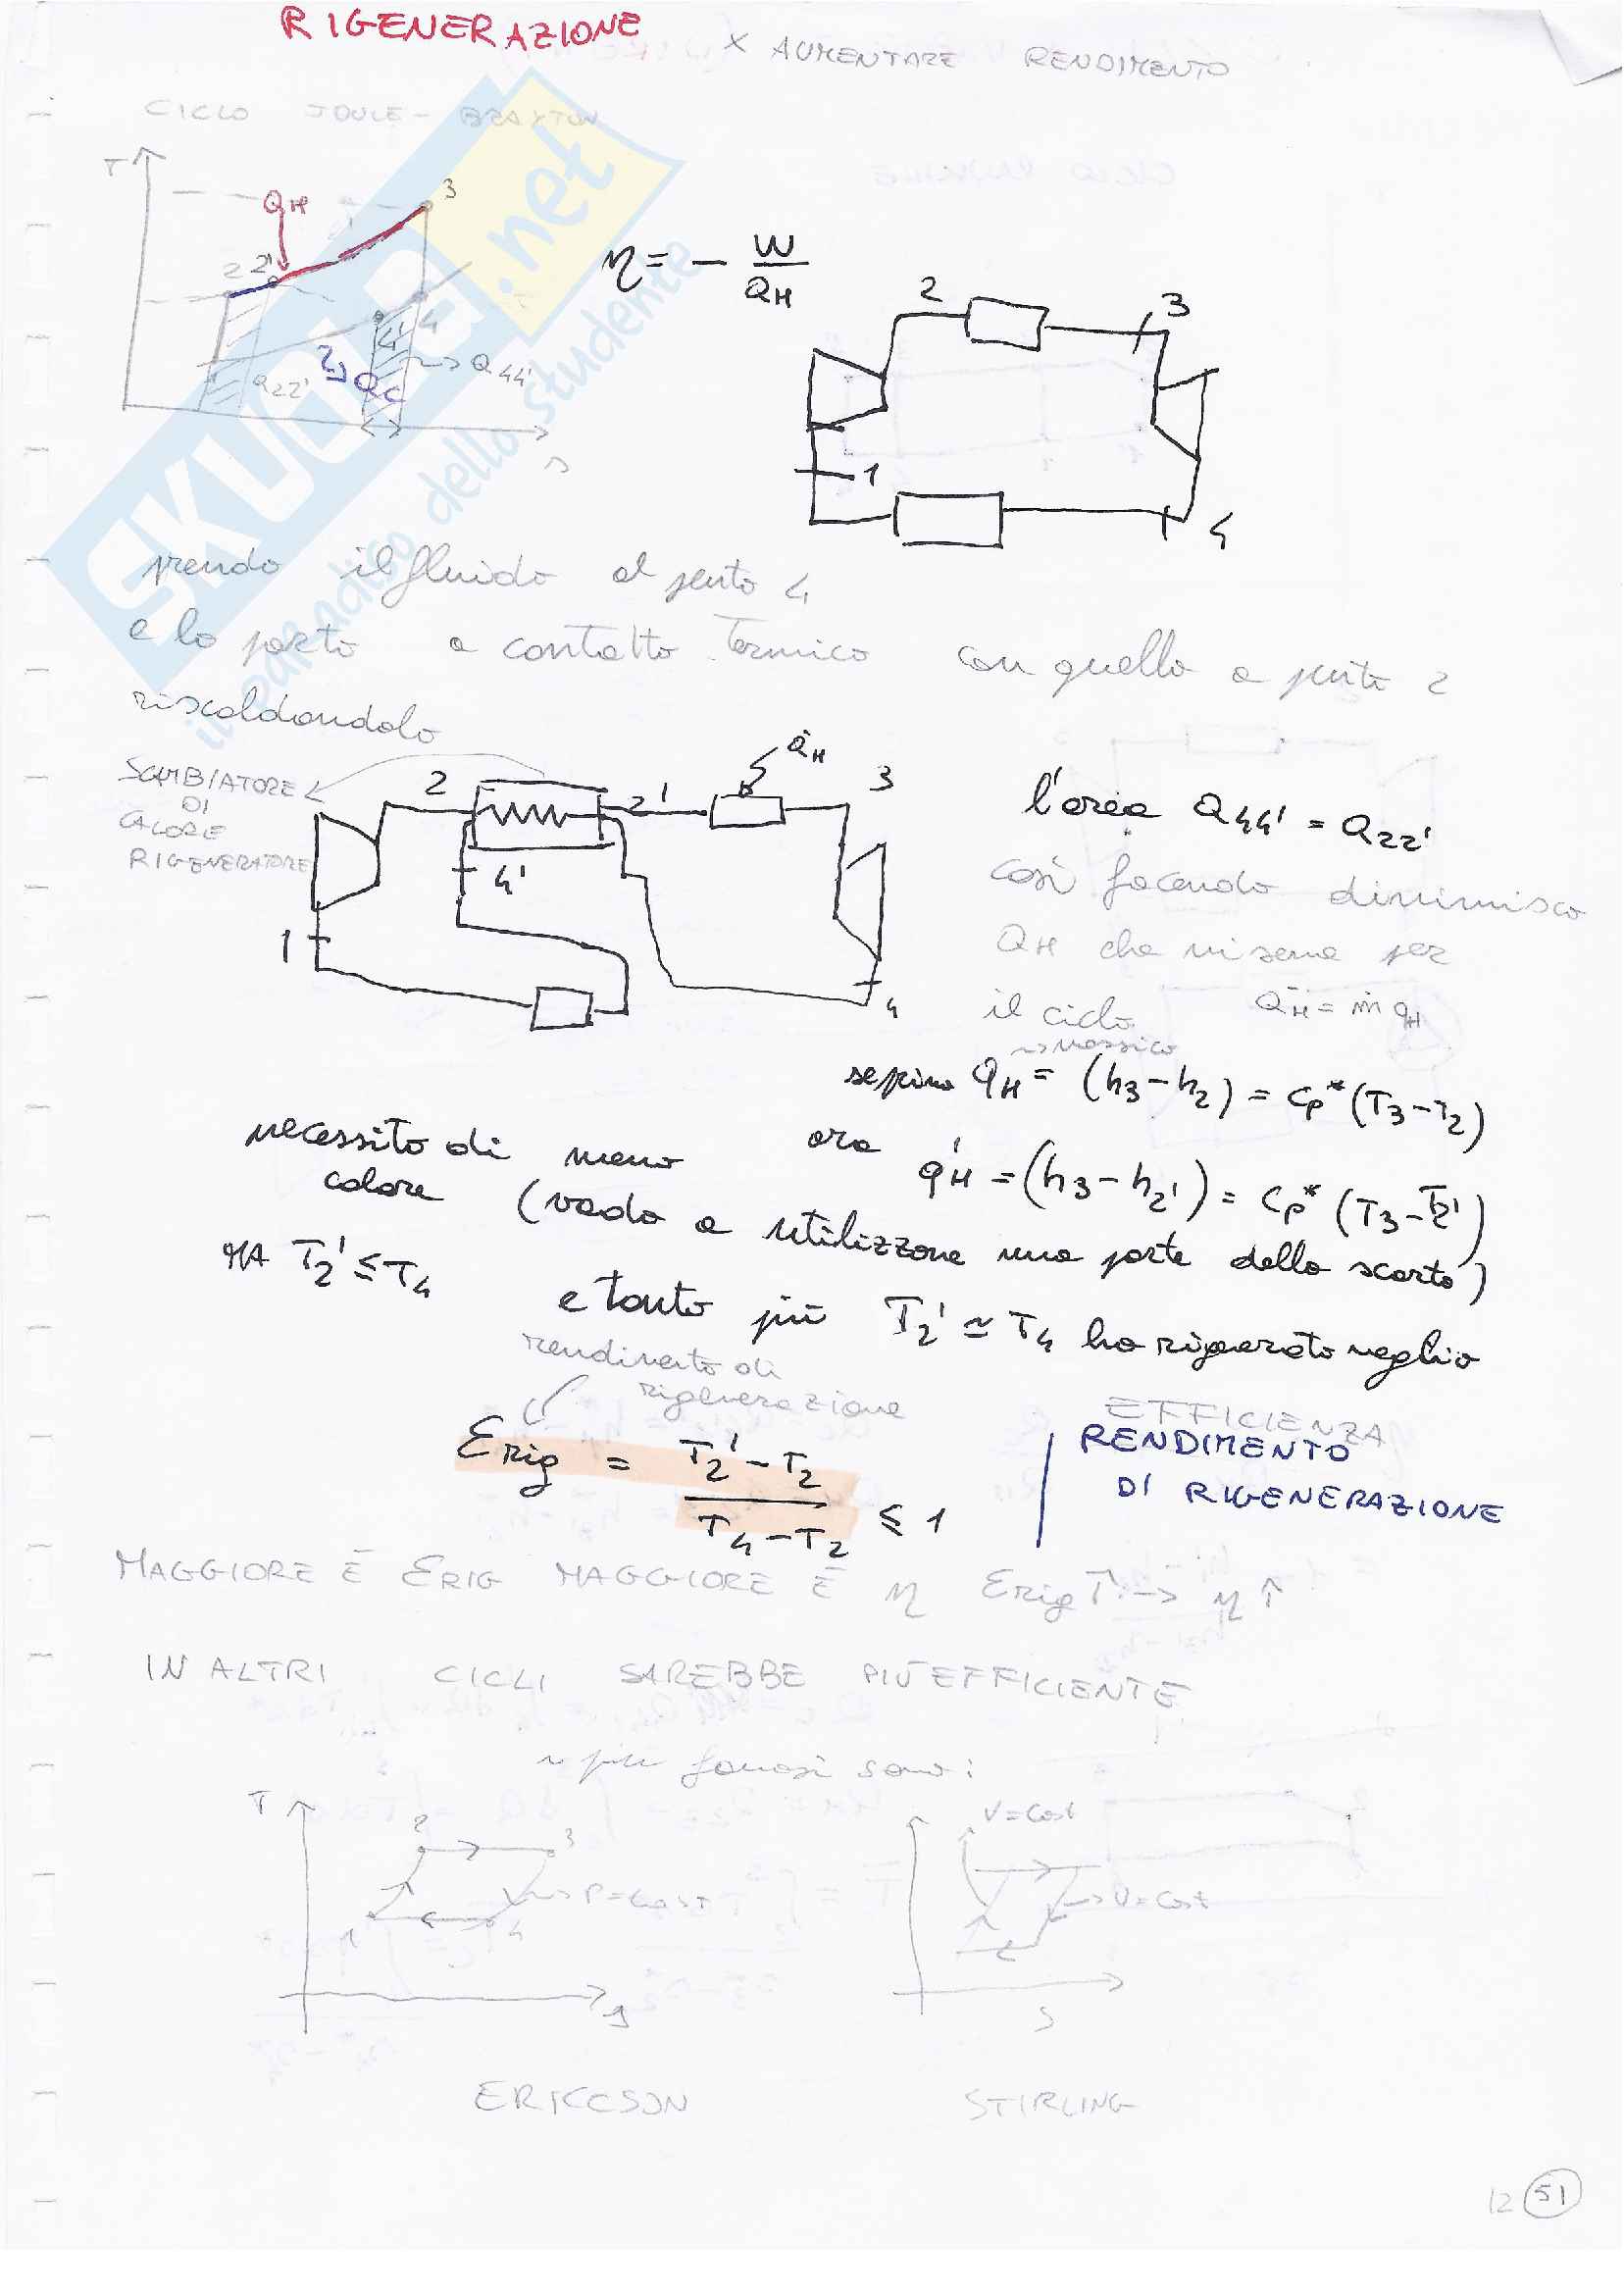 RIGENERAZIONE
X AUMENTARE RENDIMENTO
CICLO JOULE - BRAYTON
T
QH
3
2 2'
4' 4
Q22'
QC
Q44'
s
η = - W / QH
2
3
1
4
prendo il fluido al punto 4
e lo porto a contatto termico con quello a punto 2
riscaldandolo
SCAMBIATORE
DI
CALORE
RIGENERATORE
2
2'
Q̇H
3
4'
1
4
l'area Q44' = Q22'
così facendo diminuisco
QH che mi serve per
il ciclo
Q̇H = ṁ qH
massico
qH = (h3-h2) = cp* (T3-T2)
necessito di meno
calore
ora q'H = (h3-h2') = cp* (T3-T2')
(vado a utilizzare una parte dello scarto)
MA T2' ≤ T4
e tanto più T2' ≃ T4 ho rigenerato meglio
rendimento di
rigenerazione
EFFICIENZA
RENDIMENTO
DI RIGENERAZIONE
Erig = T2'-T2 / T4-T2 ≤ 1
MAGGIORE È ERIG MAGGIORE È η Erig↑ -> η↑
IN ALTRI CICLI SAREBBE PIÙ EFFICIENTE
più famosi sono:
T
2
3
P=COST
1
4
V=Cost
V=Cost
S
ERICCSON
STIRLING
12 51
SKUOLA.net
il paradiso dello studente